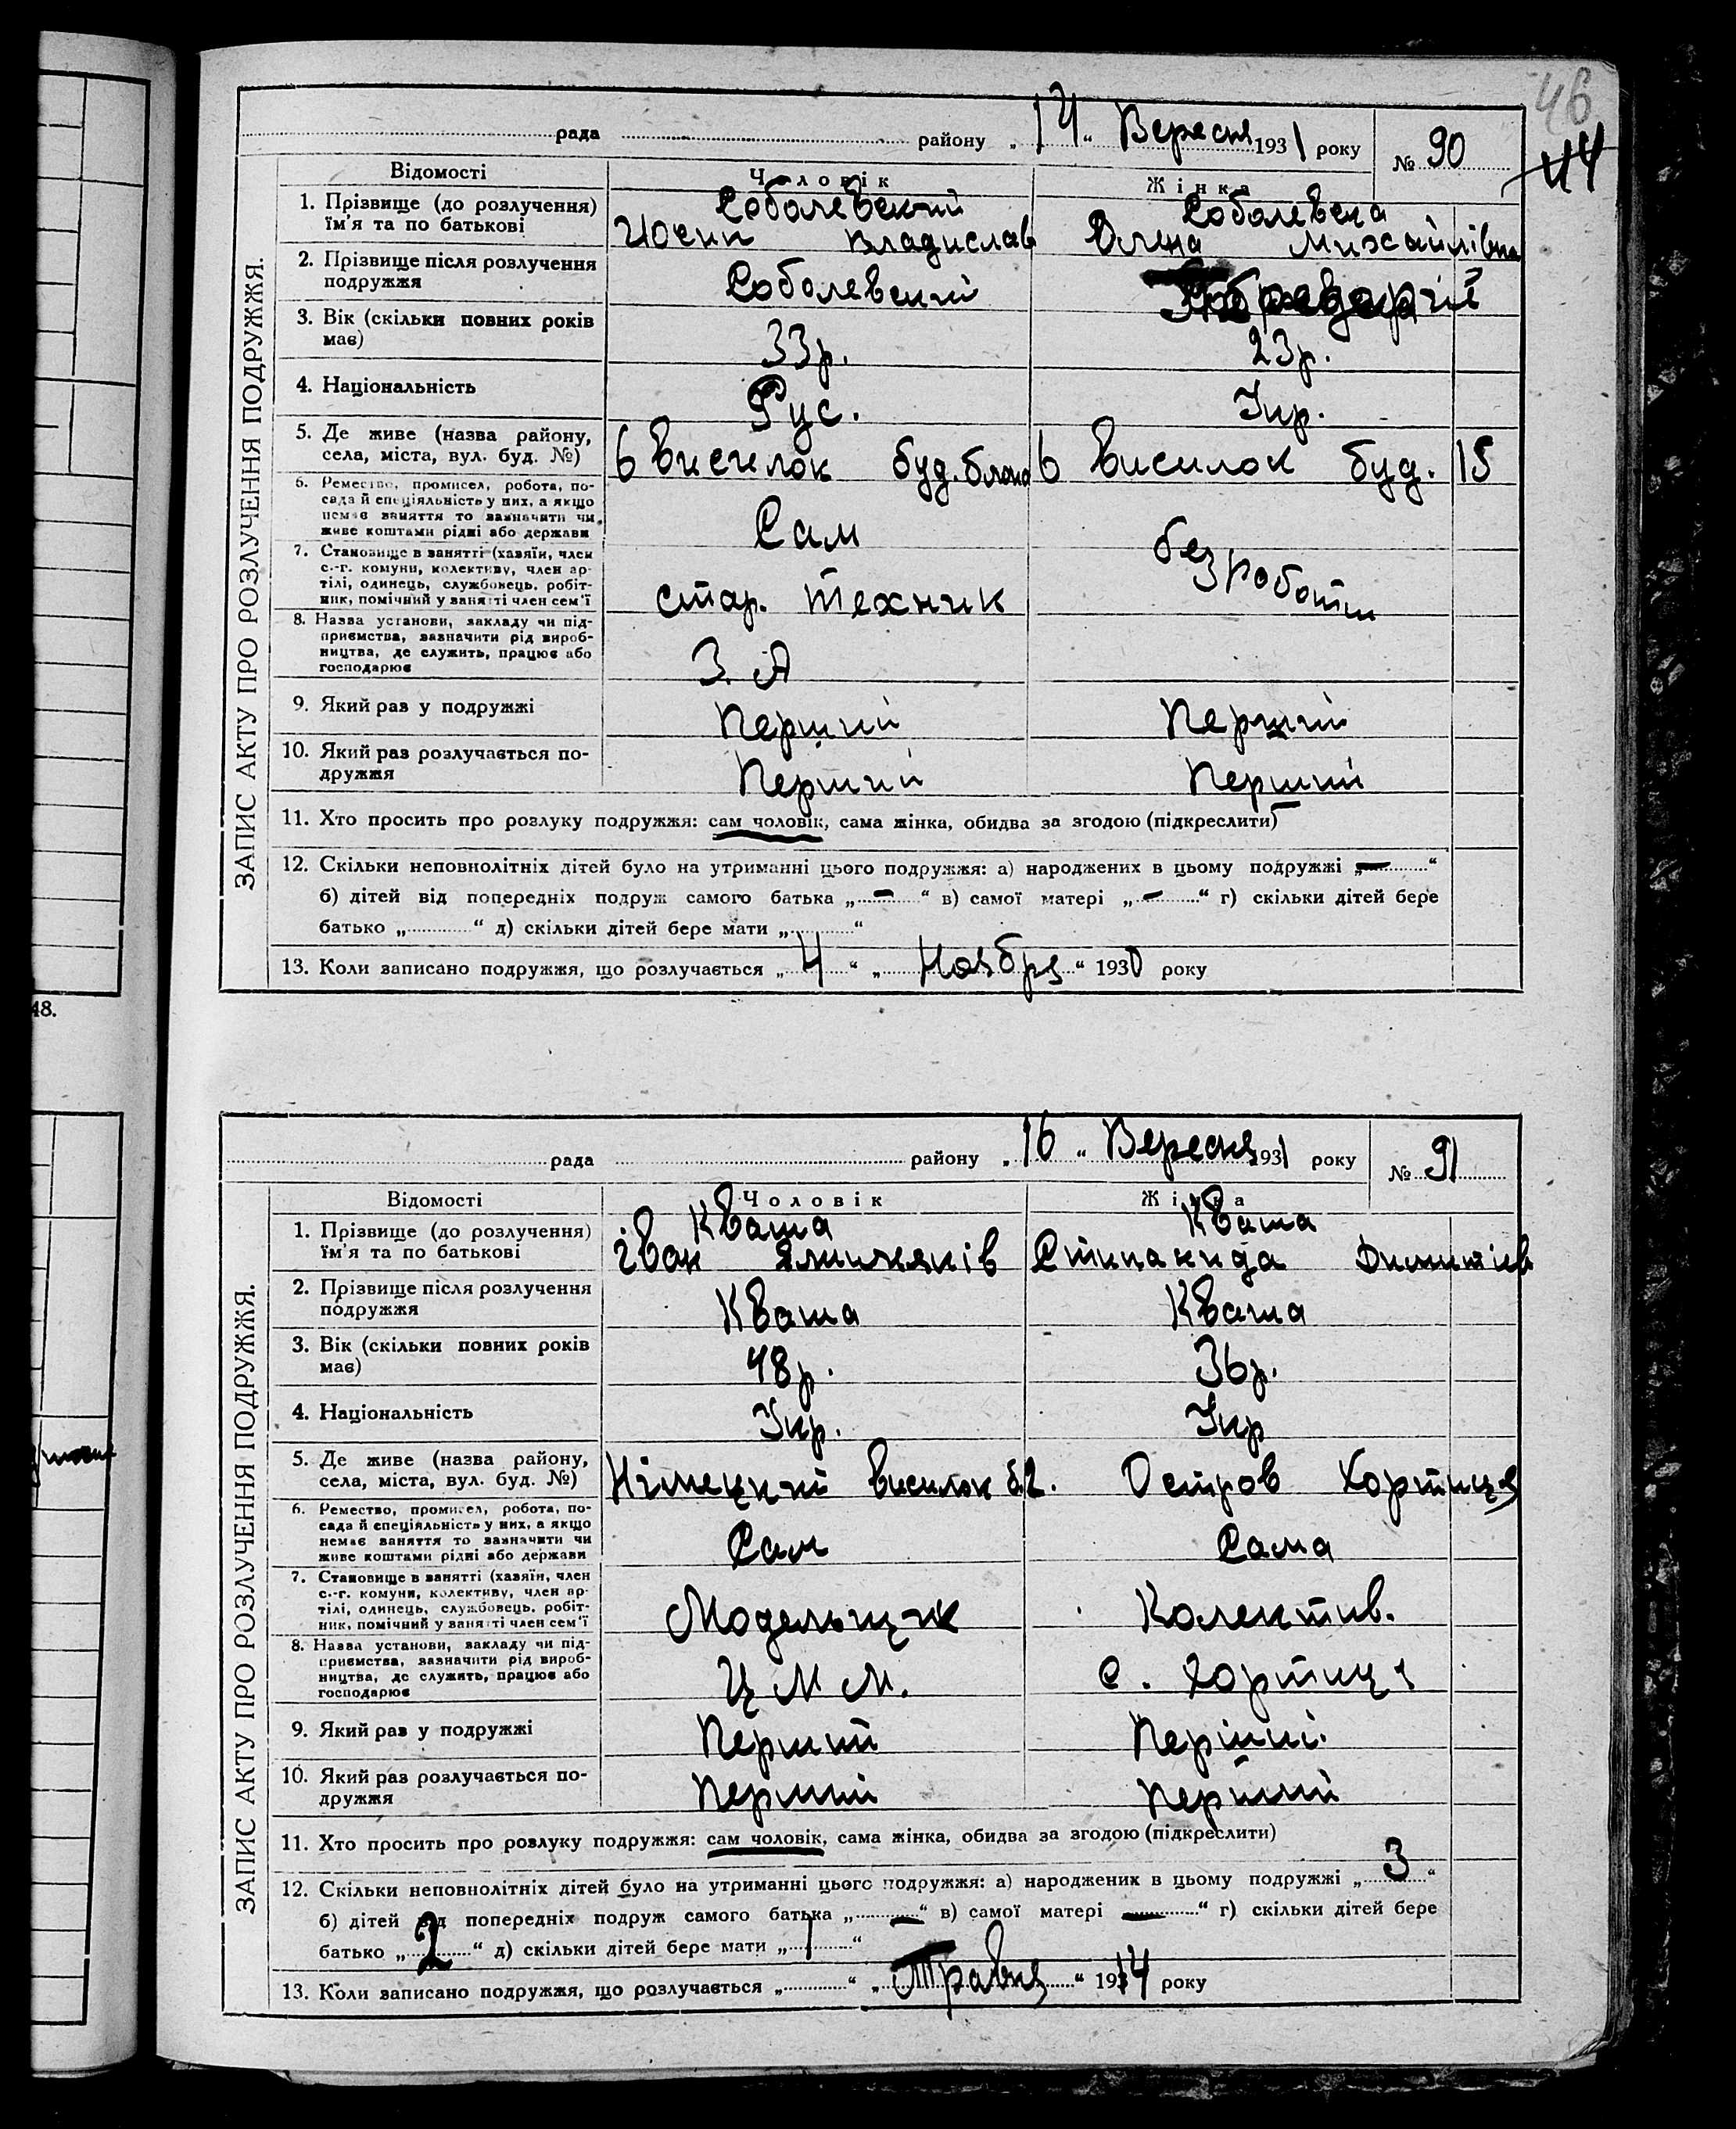 46
44
рада района „14“ Вересня 1931 року № 90
ЗАПИС АКТУ ПРО РОЗЛУЧЕННЯ ПОДРУЖЖЯ.
Відомості Чоловік Жінка
1. Прізвище (до розлучення) Соболевский Соболевска
їм'я та по батькові Юсип Владислав Олена Михайлівна
2. Прізвище після розлучення
подружжя Соболевский
3. Вік (скільки повних років
має) 33р. 23р.
4. Національність Рус. Укр.
5. Де живе (назва району,
села, міста, вул. буд. №) 6 висилок буд. 6 висилок буд. 15
6. Ремество, промисел, робота, по-
сада й спеціяльність у них, а якщо
немає заняття то зазначити чи
живе коштами рідні або держави Сам
7. Становище в занятті (хазяїн, член
с.-г. комуни, колективу, член ар-
тілі, одинець, службовець, робіт-
ник, помічний у занятті член сем'ї стар. техник без роботи
8. Назва установи, закладу чи під-
приємства, зазначити рід вироб-
ництва, де служить, працює або
господарює З. А
9. Який раз у подружжі Перший Перший
10. Який раз розлучається по-
дружжя Перший Перший
11. Хто просить про розлуку подружжя: сам чоловік, сама жінка, обидва за згодою (підкреслити)
12. Скільки неповнолітніх дітей було на утриманні цього подружжя: а) народжених в цьому подружжі „—“
б) дітей від попередніх подруж самого батька „—“ в) самої матері „—“ г) скільки дітей бере
батько „“ д) скільки дітей бере мати „“
13. Коли записано подружжя, що розлучається „4“ „Ноября“ 1930 року
48.
рада району „16“ Вересня 1931 року № 91
ЗАПИС АКТУ ПРО РОЗЛУЧЕННЯ ПОДРУЖЖЯ.
Відомості Чоловік Жінка
1. Прізвище (до розлучення) Кваша Кваша
їм'я та по батькові Іван
2. Прізвище після розлучення
подружжя Кваша Кваша
3. Вік (скільки повних років
має) 48р. 36р.
4. Національність Укр. Укр
5. Де живе (назва району,
села, міста, вул. буд. №) Німецкий висилок б.2. Остров Хортиця
6. Ремество, промисел, робота, по-
сада й спеціяльність у них, а якщо
немає заняття то зазначити чи
живе коштами рідні або держави Сам Сама
7. Становище в занятті (хазяїн, член
с.-г. комуни, колективу, член ар-
тілі, одинець, службовець, робіт-
ник, помічний у занятті член сем'ї Модельщик Колектив.
8. Назва установи, закладу чи під-
приємства, зазначити рід вироб-
ництва, де служить, працює або
господарює Ц М М. с. Хортиця
9. Який раз у подружжі Перший Перший
10. Який раз розлучається по-
дружжя Перший Перший
11. Хто просить про розлуку подружжя: сам чоловік, сама жінка, обидва за згодою (підкреслити)
12. Скільки неповнолітніх дітей було на утриманні цього подружжя: а) народжених в цьому подружжі „3“
б) дітей від попередніх подруж самого батька „—“ в) самої матері — “ г) скільки дітей бере
батько „2“ д) скільки дітей бере мати „1“
13. Коли записано подружжя, що розлучається „“ „Травня“ 1914 року